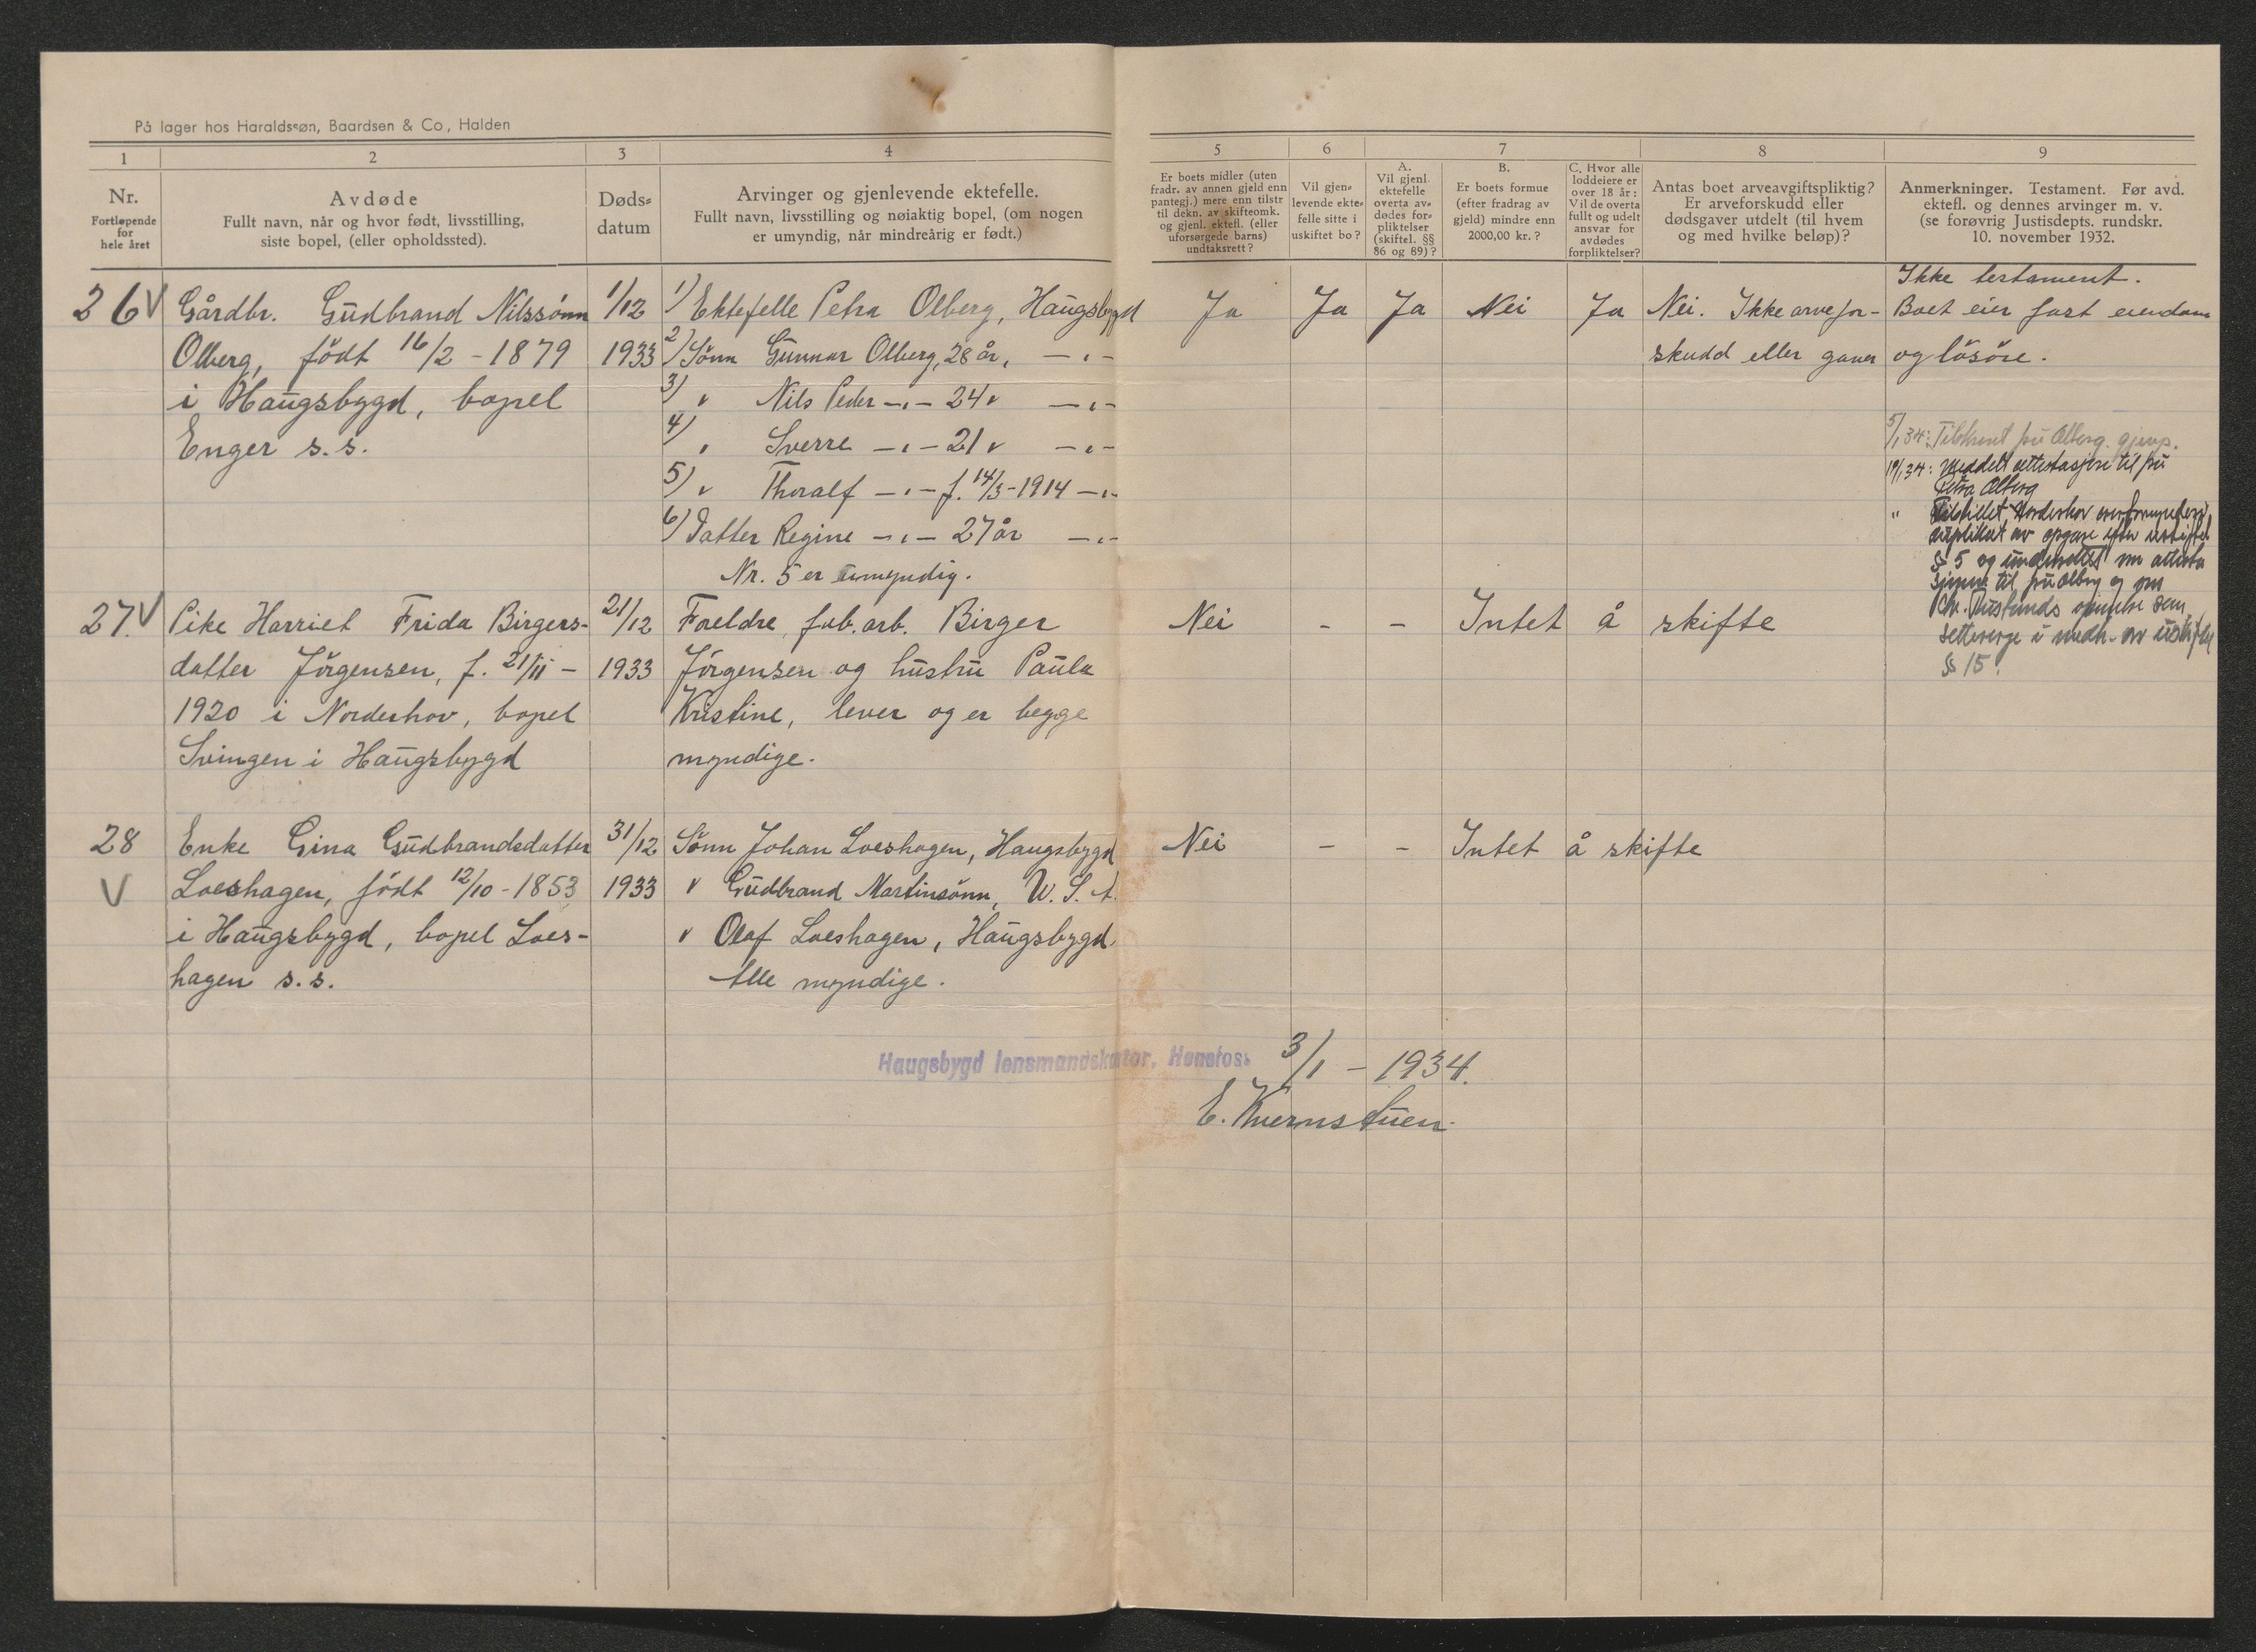 På lager hos Haraldssøn, Baardsen & Co, Halden
1
2
3
4
5
6
7
8
9
Nr.
Fortløpende
for
hele året
Avdøde
Fullt navn, når og hvor født, livsstilling,
siste bopel, (eller opholdssted).
Døds=
datum
Arvinger og gjenlevende ektefelle.
Fullt navn, livsstilling og nøiaktig bopel, (om nogen
er umyndig, når mindreårig er født.)
Er boets midler (uten
fradr. av annen gjeld enn
pantegj.) mere enn tilstr
til dekn. av skifteomk.
og gjenl. ektefl. (eller
uforsørgede barns)
undtaksrett?
Vil gjen=
levende ekte=
felle sitte i
uskiftet bo?
A.
Vil gjenl.
ektefelle
overta av=
dødes for=
pliktelser
(skiftel. §§
86 og 89)?
B.
Er boets formue
(efter fradrag av
gjeld) mindre enn
2000,00 kr.?
C. Hvor alle
loddeiere er
over 18 år:
Vil de overta
fullt og udelt
ansvar for
avdødes
forpliktelser?
Antas boet arveavgiftspliktig?
Er arveforskudd eller
dødsgaver utdelt (til hvem
og med hvilke beløp)?
Anmerkninger. Testament. Før avd.
ektefl. og dennes arvinger m. v.
(se forøvrig Justisdepts. rundskr.
10. november 1932.
26 V
Gårdbr. Gudbrand Nilssønn
Olberg, født 16/2 - 1879
i Haugsbygd, bopel
Enger s. s.
1/12
1933
1) Ektefelle Petra Olberg, Haugsbygd
2) Sønn Gunnar Olberg, 28 år, -"-
3) " Nils Peder -"- 24 " -"-
4) " Sverre -"- 21 " -"-
5) " Thoralf -"- f. 14/3 - 1914 -"-
6) Datter Regine -"- 27 år -"-
Nr. 5 er umyndig.
Ja
Ja
Ja
Nei
Ja
Nei. Ikke arvefor-
skudd eller gaver
Ikke testament.
Boet eier fast eiendom
og løsøre.
5/1 34: Tilskrevet fru Olberg.
10/1 34: Meddelt attestasjon til fru
Petra Olberg
" Tilstillet Norderhov overformynderi
duplikat av opgave efter uskiftel
§ 5 og underrettet om attesta
sjonen til fru Olberg og om
Chr. opnevnelse som
setteverge i medh. av uskiftel
§ 15.
27. V
Pike Harriet Frida Birgers-
datter Jørgensen, f. 21/11 -
1920 i Norderhov, bopel
Svingen i Haugsbygd
21/12
1933
Foreldre fab. arb. Birger
Jørgensen og hustru Paula
Kristine, lever og er begge
myndige.
Nei
-
-
Intet å skifte
28
V
Enke Gina Gudbrandsdatter
Loeshagen, født 12/10 - 1853
i Haugsbygd, bopel Loes-
hagen s. s.
31/12
1933
Sønn Johan Loeshagen, Haugsbygd
" Gudbrand Martinsønn, U. S. A.
" Olaf Loeshagen, Haugsbygd.
Alle myndige.
Nei
-
-
Intet å skifte
Haugsbygd lensmandskontor, Hønefoss 3/1 - 1934.
E. Kvernstuen.